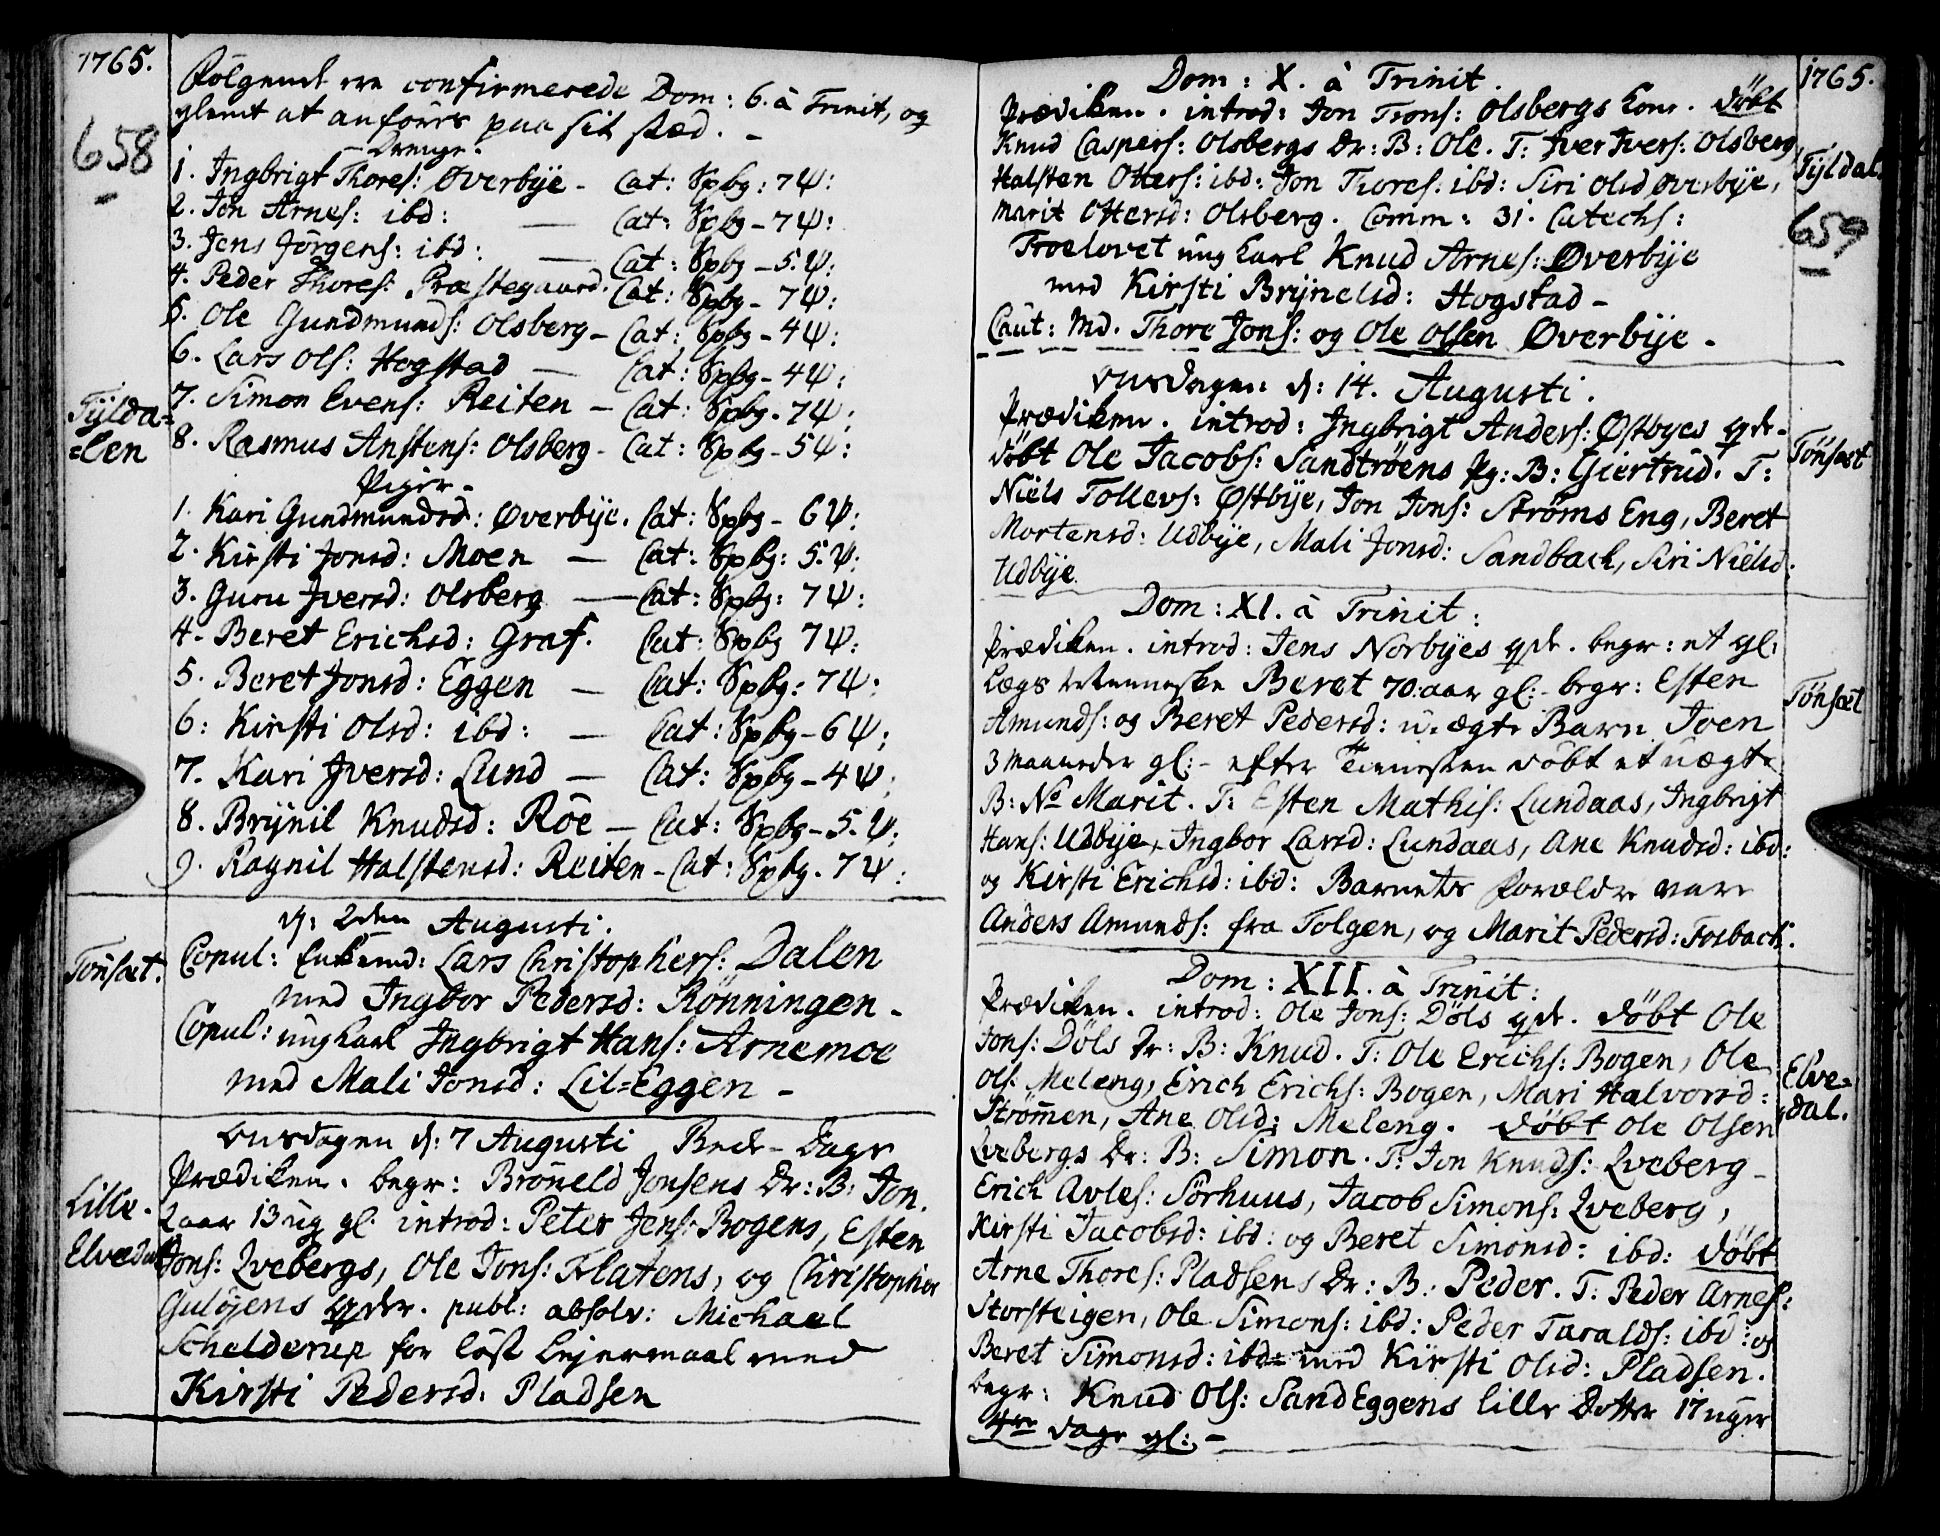 1765.
658
Følgende ere confirmerede Dom: 6. à Trinit, og
glemt at anføres paa sit stæd. -
Drenge.
1. Ingbrigt Thores: Øverbÿe - Cat: Spbg: 7Ψ:
2. Jon Arnes: ibd: — Cat: Spbg - 7Ψ:
3. Jens Jörgens: ibd: — Cat: Spbg - 5.Ψ:
4. Peder Thores: Præstegaard. Cat: Spbg - 7Ψ:
5. Ole Gundmunds: Olsberg - Cat: Spbg - 4Ψ:
6. Lars Ols: Hogstad — Cat: Spbg - 4Ψ:
Tÿlda=
=len
7. Simon Evens: Reiten - Cat: Spbg. 7Ψ:
8. Rasmus Anstens: Olsberg - Cat: Spbg - 5Ψ:
Piger.
1. Kari Gundmundsd: Øverbÿe. Cat: Spbg - 6Ψ:
2. Kirsti Jonsd: Moen — Cat: Spbg: 5.Ψ:
3. Guru Jversd: Olsberg — Cat: Spbg: 7Ψ:
4. Beret Erichsd: Graf. Cat: Spbg 7Ψ:
5. Beret Jonsd: Eggen — Cat: Spbg: 7Ψ:
6: Kirsti Olsd: ibd: — Cat: Spbg - 6Ψ:
7. Kari Jversd: Lund — Cat: Spbg - 4Ψ:
8. Brÿnil Knudsd: Röe — Cat: Spbg - 5.Ψ:
9. Ragnil Halstensd: Reiten - Cat: Spbg. 7Ψ:
d: 2den Augusti.
Tönset.
Copul: Enkemd: Lars Christophers: Dalen
med Ingbor Pedersd: Rønningen -
Copul: ungkarl Jngbrigt Hans: Arnemoe
med Mali Jonsd: Lil=Eggen -
Onsdagen d: 7 Augusti Bede-Dage
Lille-
Elvedal
Prædiken. begr: Bröneld Jonsens Dr: B: Jon.
2 aar 13 ug gl. introd: Peter Jens: Bogens, Esten
Jons: Qvebergs, Ole Jons: Klatens, og Christopher
Gulöjens qvdr. publ: absolv: Michael
Schelderup for löst Lejermaal med
Kirsti Pedersd: Pladsen
1765.
Dom: X. à Trinit.
Tÿldal.
659
Prædiken. introd: Jon Trons: Olsbergs kone. döbt
Knud Caspers: Olsbergs Dr: B: Ole. T: Jver Jvers: Olsberg,
Halsten Otters: ibd: Jon Thores: ibd: Siri Olsd Øverbÿe,
Marit Ottersd: Olsberg. Comm: 31. Catechs:
Troelovet ung karl Knud Arnes: Øverbÿe
med Kirsti Brÿnelsd: Hogstad -
Caut: Md. Thore Jons: og Ole Olsen Øverbÿe.
Onsdagen d: 14. Augusti.
Tönset
Prædiken. introd: Jngbrigt Anders: Østbyes qvde.
döbt Ole Jacobs: Sandtröens Pg: B: Giertrud. T:
Niels Tollevs: Østbÿe, Jon Jons: Ströms Eng, Beret
Mortensd: Udbÿe, Mali Jonsd: Sandback, Siri Nielsd:
Udbÿe.
Dom: XI. à Trinit:
Tönset
Prædiken. introd: Jens Norbÿes qvde. begr: et gl:
Lægs Menneske Beret 70. aar gl: - begr: Esten
Amunds: og Beret Pedersd: u-ægte Barn Joen
3 maaneder gl: - efter Tienesten döbt et uægte
B: No Marit. T: Esten Mathis: Lundaas, Ingbrigt
Hans: Udbÿe, Ingbor Larsd: Lundaas, Ane Knudsd: ibd:
og Kirsti Erichsd: ibd: Barnets Forældre vare
Anders Amunds: fra Tolgen, og Marit Pedersd: Fosback.
Dom: XII. à Trinit:
Elve-
dal.
Prædiken. introd: Ole Jons: Döls qvde. döbt Ole
Jons: Döls Dr: B: Knud. T: Ole Erichs: Bogen, Ole
Ols: Meleng, Erich Erichs: Bogen, Mari Halvorsd:
Strömen, Ane Olsd: Meleng. döbt Ole Olsen
Qvebergs Dr: B: Simon. T: Jon Knuds: Qveberg -
Erich Avles: Sörhuus, Jacob Simons: Qveberg,
Kirsti Jacobsd: ibd: og Beret Simonsd: ibd: döbt
Arne Thores: Pladsens Dr: B: Peder. T: Peder Arnes:
Storsteigen, Ole Simons: ibd: Peder Taralds: ibd: og
Beret Simonsd: ibd: med Kirsti Olsd: Pladsen.
begr: Knud Ols: SandEggens lille Dotter 17 uger
4re dage gl: -